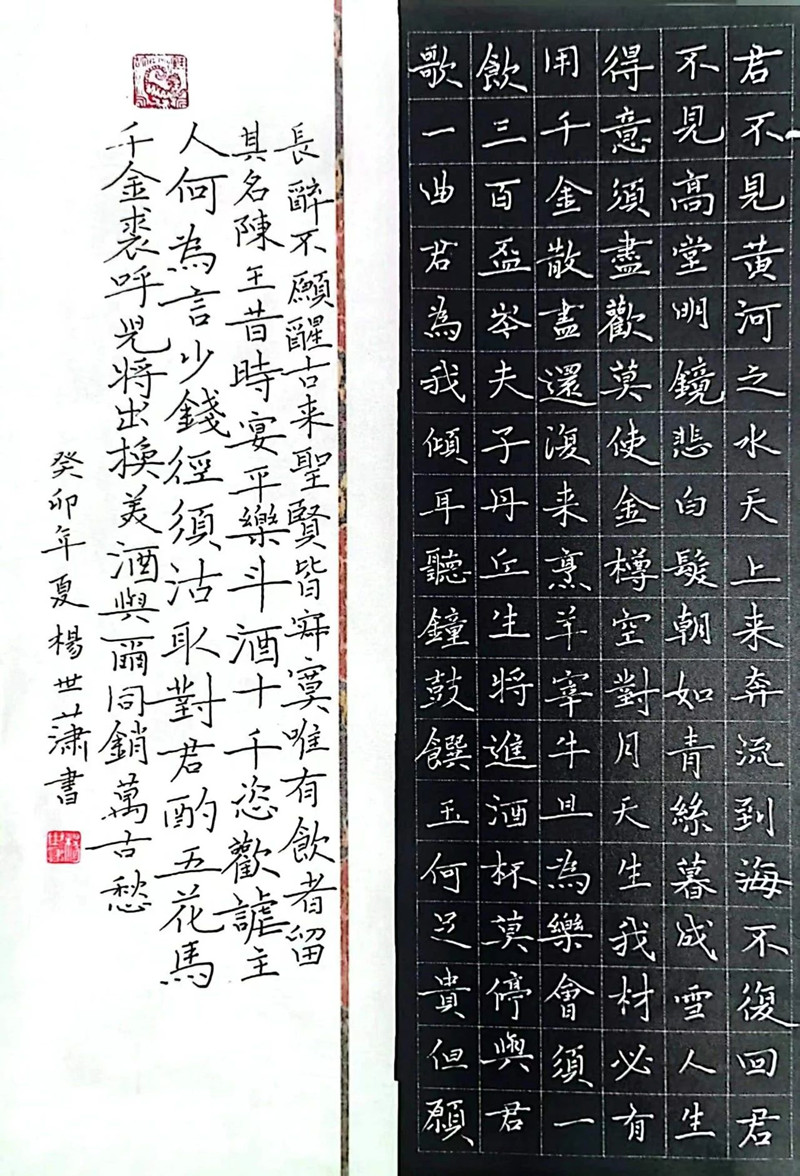 君不見黄河之水天上来奔流到海不復回君
不見高堂明鏡悲白髮朝如青絲暮成雪人生
得意須盡歡莫使金樽空對月天生我材必有
用千金散盡還復来烹羊宰牛且為樂會須一
飲三百盃岑夫子丹丘生将進酒杯莫停與君
歌一曲君為我傾耳聽鐘鼓饌玉何足貴但願
長醉不願醒古来聖賢皆寂寞唯有飲者留
其名陳王昔時宴平樂斗酒十千恣歡謔主
人何為言少錢徑須沽取對君酌五花馬
千金裘呼児将出換美酒與爾同銷萬古愁
癸卯年夏楊世蕭書